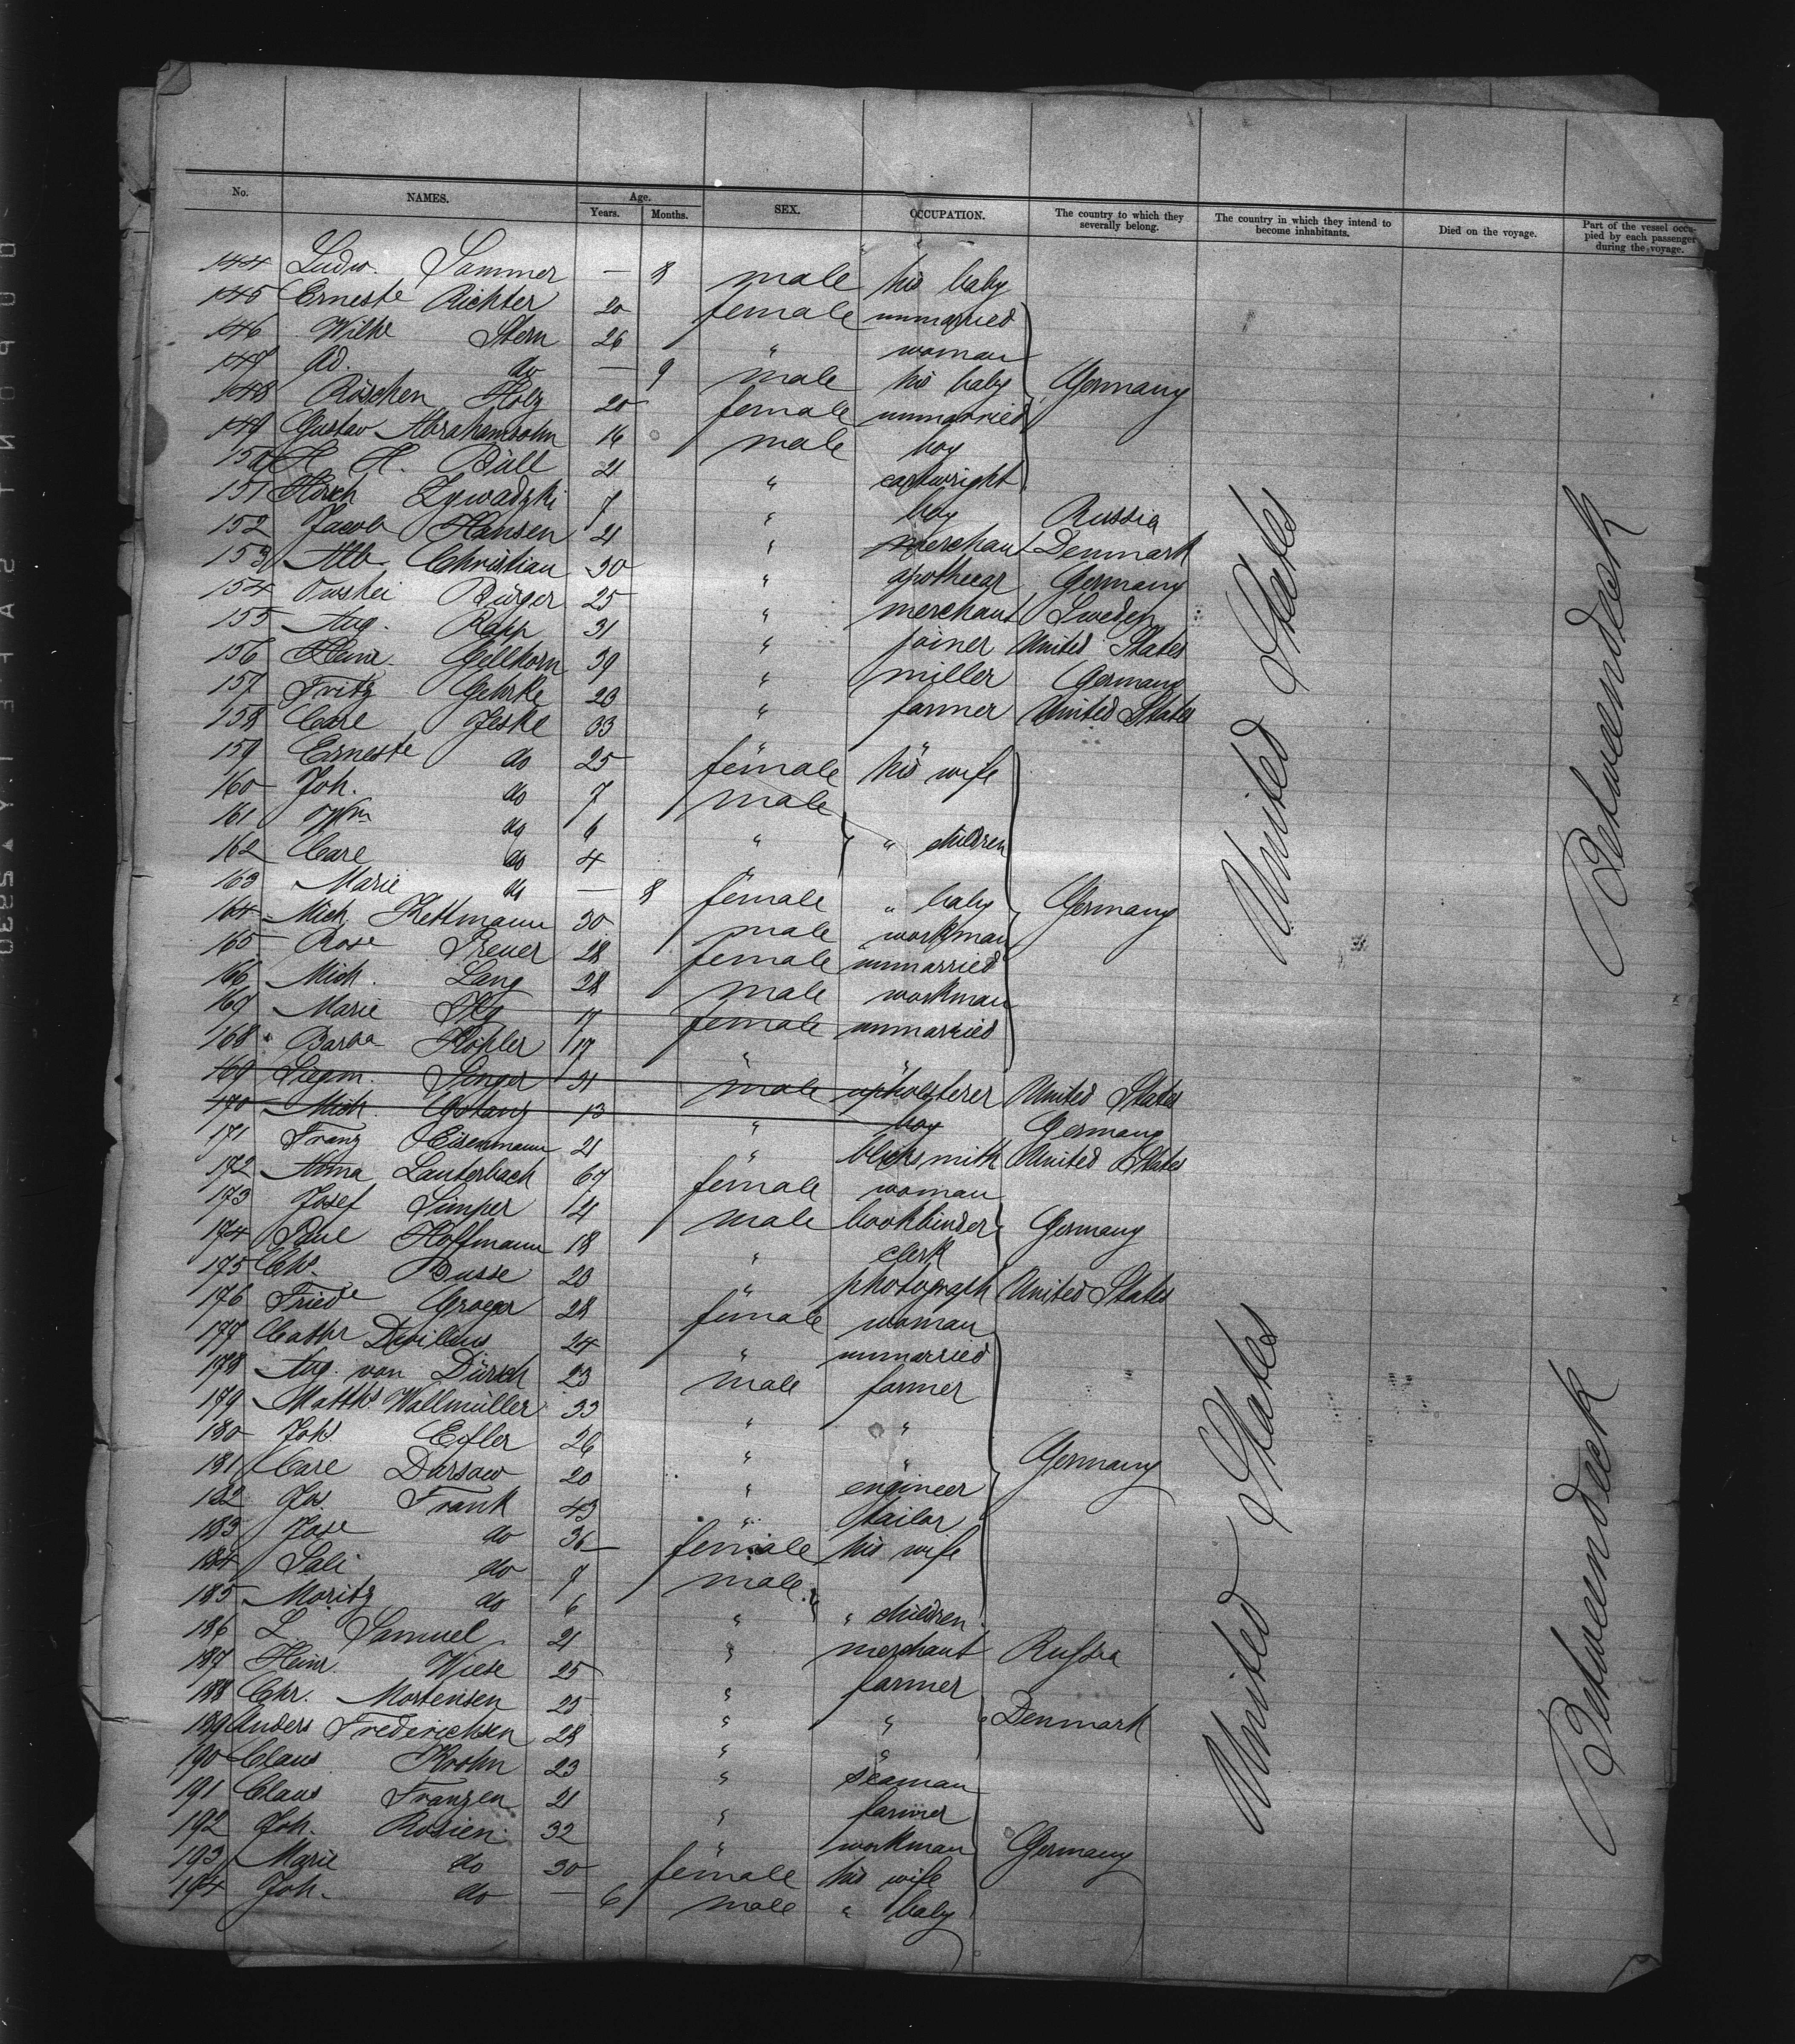 No. NAMES. Age. Years. Months. SEX. OCCUPATION. The country to which they severally belong. The country in which they intend to become inhabitants. Died on the voyage. Part of the vessel occupied by each passenger during the voyage.
144 Ludw. Sommer — 8 male his baby
145 Erneste Richter 20 female unmarried
146 Wilhe Stern 26 " woman
147 Ad. do — 9 male his baby Germany
148 Röschen Holz 20 female unmarried
149 Gustav Abrahamsohn 16 male boy
150 H. H. Büll 21 " cartwright
151 Hirch Zywadzki 7 " boy Russia
152 Jacob Hansen 21 " merchant Denmark
153 Alb. Christian 30 " apothecar Germany
154 Bürger 25 " merchant Sweden
155 Aug. Rapp 31 " joiner United States
156 Heinr. Gellhorn 39 " miller Germany
157 Fritz Gehrke 23 " farmer United States
158 Carl Jeske 33 " "
159 Erneste do 25 female his wife
160 Joh. do 7 male
161 Wm do 6 " " children
162 Carl do 4 "
163 Marie do — 8 female " baby Germany
164 Mich. Kettmann 30 male workman
165 Rose Preuer 28 female unmarried
166 Mich. Lang 28 male workman
167 Marie 17 female unmarried
168 Barba Kohler 17 " "
169 Siegm. Singer 21 male upholsterer United States
170 Mich. 13 " boy Germany
171 Franz Eisenmann 21 " blicksmith United States
172 Anna Lauterbach 67 female woman
173 Josef Simper 21 male bookbinder Germany
174 Paul Hoffmann 18 " clerk
175 Chs. Busse 23 " photograph United States
176 Friede Groeger 28 female woman
177 Cathr 24 " unmarried
178 Aug. von Dürsch 23 male farmer
179 Matths. Wallmüller 33 " "
180 Johs Eifler 26 " " Germany
181 Carl Darsow 20 " engineer
182 Js. Frank 43 " tailor
183 Jose do 36 female his wife
184 Sali do 7 male
185 Moritz do 6 " " children
186 L. Samuel 21 " merchant Russia
187 Heinr. Wiese 25 " farmer
188 Chr. Mortensen 25 " " Denmark
189 Anders Frederichsen 28 " "
190 Claus Krohn 23 " seaman
191 Claus Franzen 21 " farmer
192 Joh. Rosien 32 " workman Germany
193 Marie do 30 female his wife
194 Joh. do — 6 male " baby
United States
Betweendeck
United States
Betweendeck